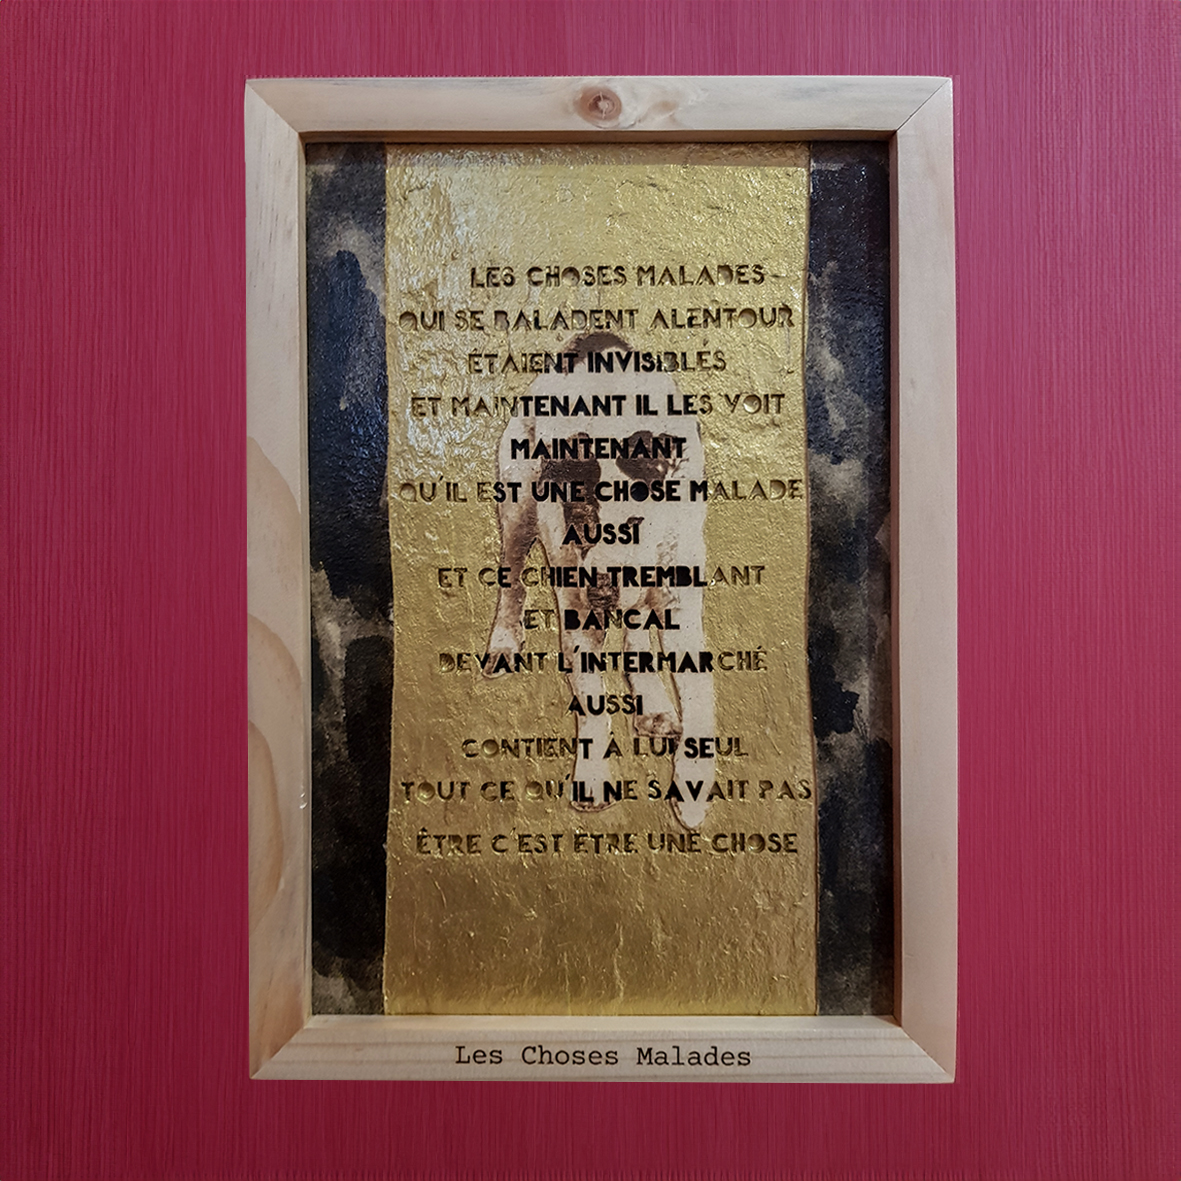 LES CHOSES MALADES
QUI SE BALADENT ALENTOUR
ÉTAIENT INVISIBLES
ET MAINTENANT IL LES VOIT
MAINTENANT
QU'IL EST UNE CHOSE MALADE
AUSSI
ET CE CHIEN TREMBLANT
ET BANCAL
DEVANT L'INTERMARCHÉ
AUSSI
CONTIENT À LUI SEUL
TOUT CE QU'IL NE SAVAIT PAS
ÊTRE C'EST ÊTRE UNE CHOSE
Les Choses Malades